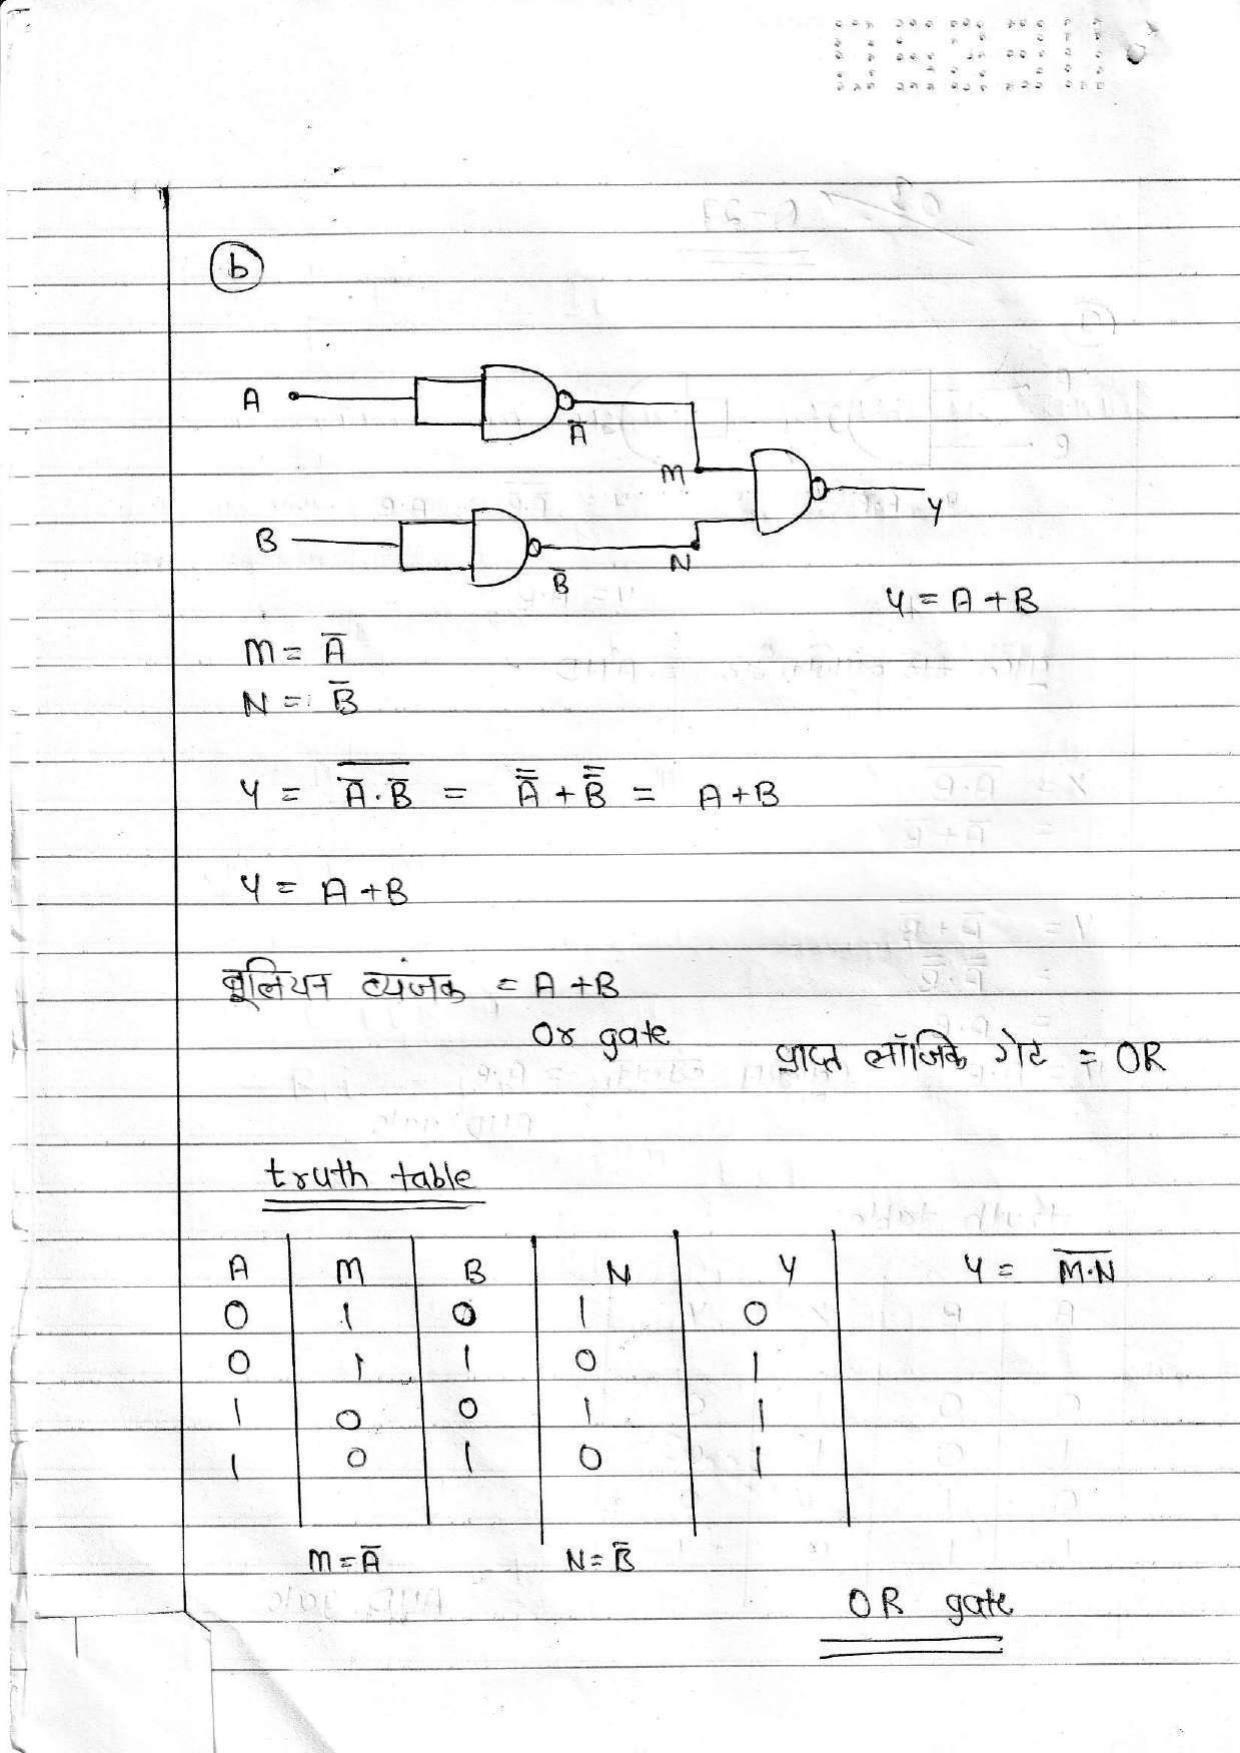 b
A
A̅
M
Y
B
B̅
N
Y = A + B
M = A̅
N = B̅
Y = \overline{A̅·B̅} = A̿ + B̿ = A+B
Y = A + B
बूलियन व्यंजक = A + B
Or gate
प्राप्त लॉजिक गेट = OR
truth table
A M B N Y Y = \overline{M·N}
0 1 0 1 0
0 1 1 0 1
1 0 0 1 1
1 0 1 0 1
M = A̅ N = B̅
OR gate